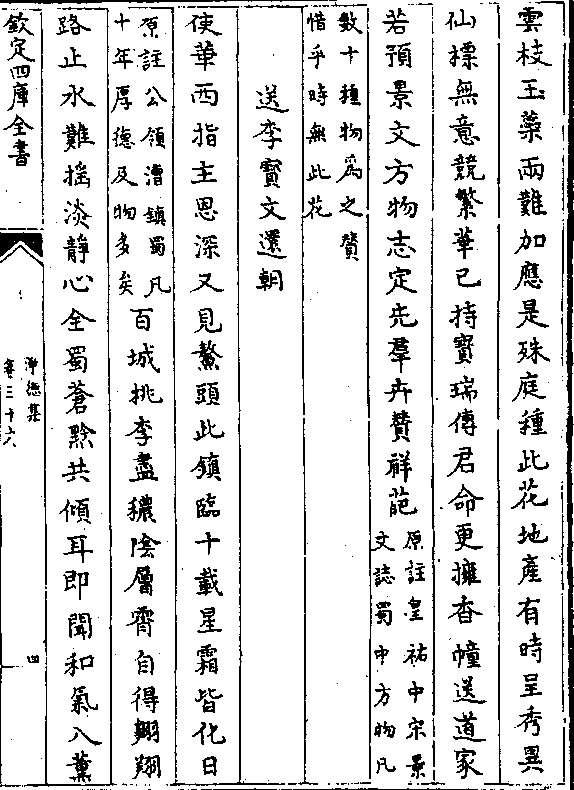 雲枝玉蘂兩難加應是殊庭種此花地產有時呈秀異
仙摽無意競繁華已持寶瑞傳君命更擁香幢送道家
若預景文方物志定先羣卉贊祥葩
原註皇祐中宋景
文誌蜀中方物凡
數十種物爲之贊
惜乎時無此花
送李寶文還朝
使華西指主恩深又見鰲頭此鎮臨十載星霜皆化日
原註公領漕鎮蜀凡
十年厚德及物多矣
百城桃李盡穠陰層霄自得翺翔
路止水難摇淡靜心全蜀蒼黔共傾耳即聞和氣入薫
欽定四庫全書
淨德集
卷三十六
四